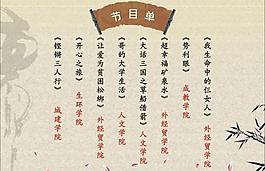 节目单
《我生命中的仨女人》 外经贸学院
《势利眼》 成教学院
《超幸福矿泉水》 外经贸学院
《大话三国之草船借箭》 人文学院
《哥的大学生活》 人文学院
《让爱为贫困松绑》 外经贸学院
《开心之旅》 生环学院
《铿锵三人行》 城建学院